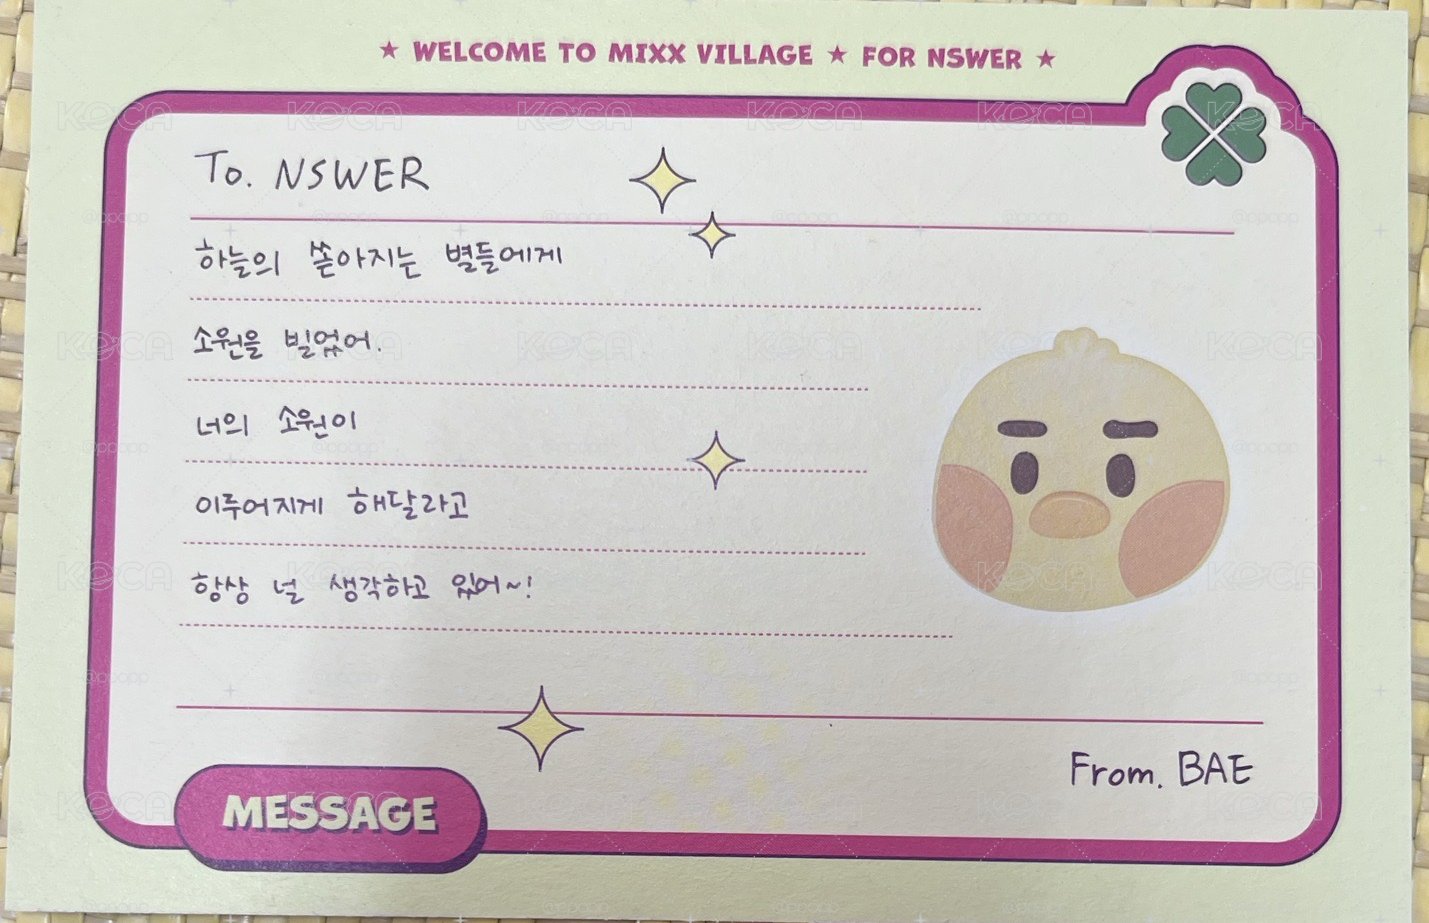 ★ WELCOME TO MIXX VILLAGE ★ FOR NSWER ★
To. NSWER
하늘의 쏟아지는 별들에게
소원을 빌었어.
너의 소원이
이루어지게 해달라고
항상 널 생각하고 있어~!
From. BAE
MESSAGE
KOCA
@ppopp